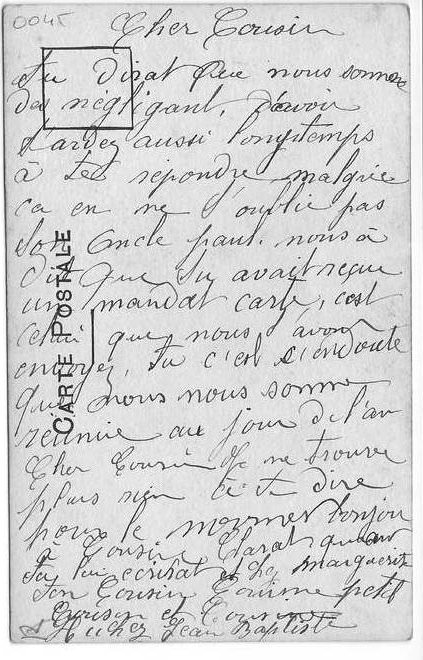 0045
Cher Cousin
tu dirat que nous somme
des négligant, d'avoir
tardez aussi longtemps
à te répondre malgrée
ca en ne t'oublie pas
ton Oncle paul. nous à
dit que tu avait reçue
un mandat carte, c'est
celui que nous avon
envoyez, tu c'est s'endoute
que nous nous somme
réunie au jour de l'an
Cher Cousin Je ne trouve
plus rien à te dire
pour le moment bonjou
a Cousine Clara quan
tu lui écrirat et Marguerite
ton Cousin petit
Cousin et Cousine
Huchez Jean Baptiste
CARTE POSTALE